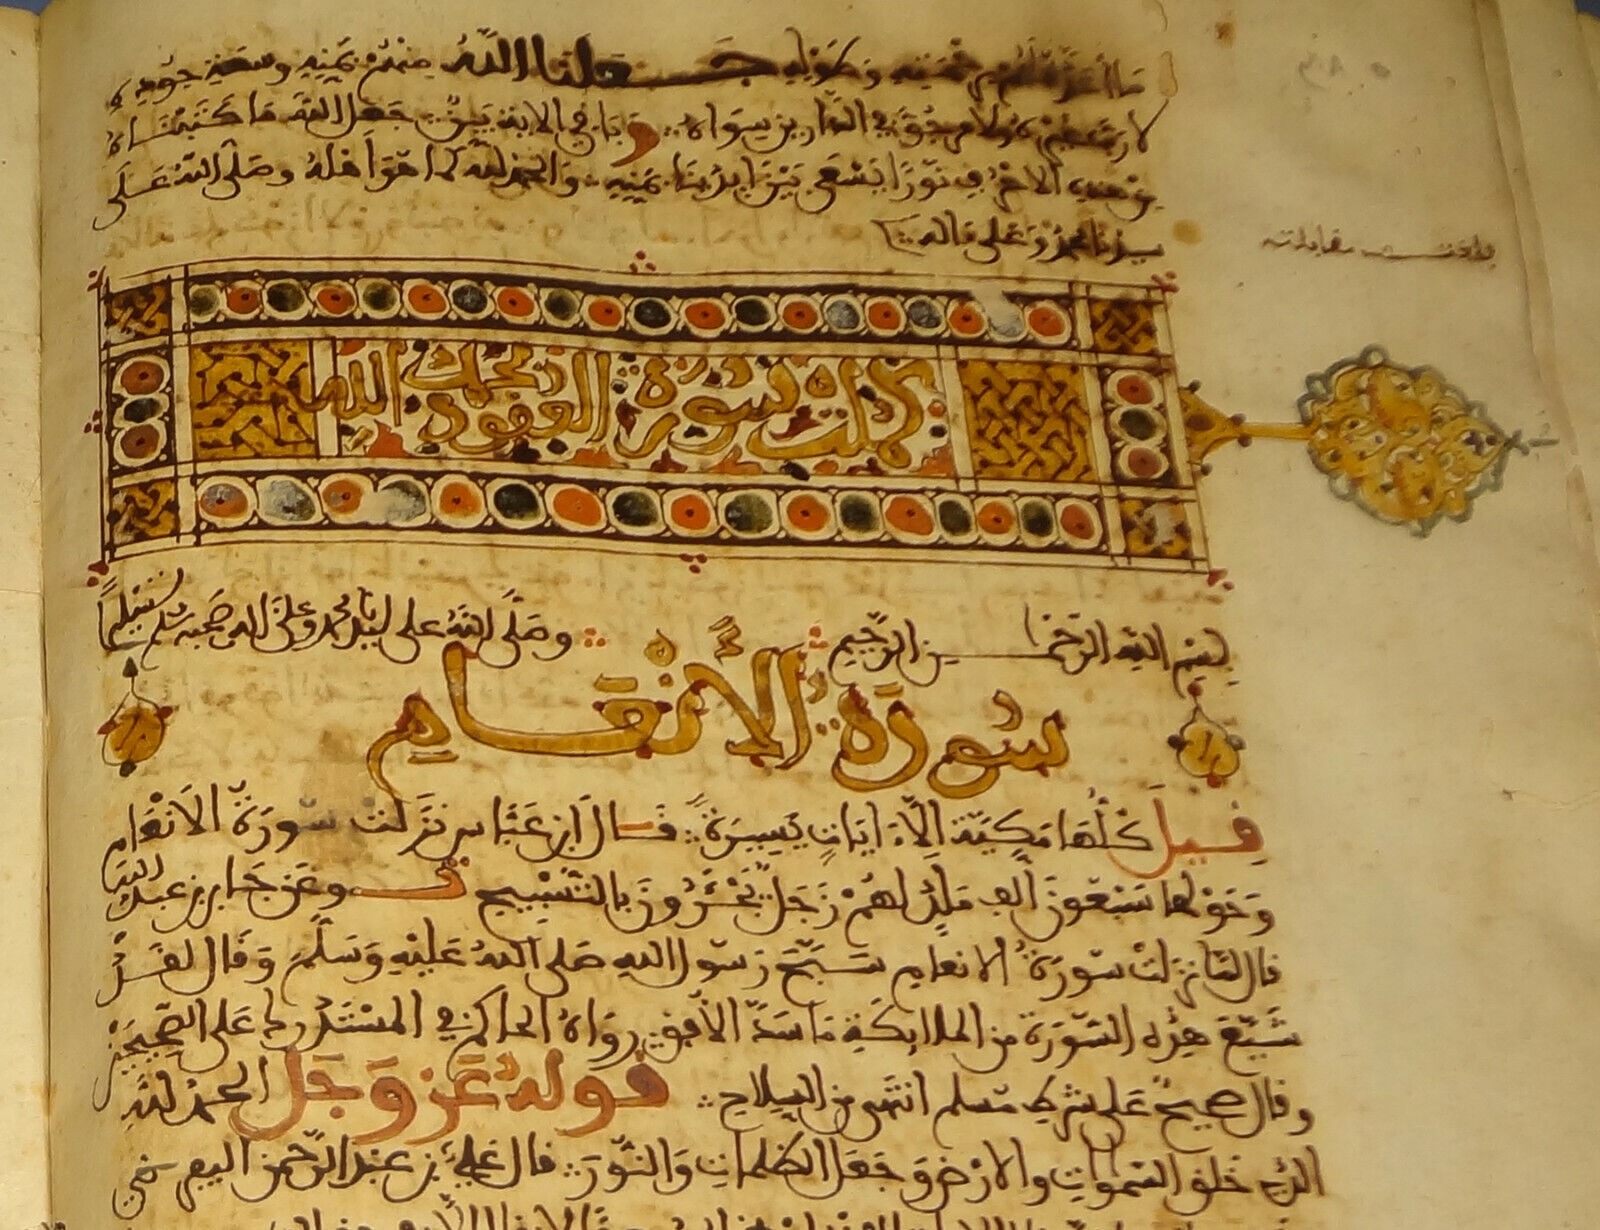 جعلنا الله منهم بمنه وسعة جوده
لا رب غيره ولا مرجو في الدارين سواه وباقي الآية بين جعل الله ما كتبناه
نورا يسعى بين أيدينا بمنه والحمد لله كما هو أهله وصلى الله على
سيدنا محمد وعلى آله
بلغت مقابلة
كملت سورة العقود والحمد لله
بسم الله الرحمن الرحيم وصلى الله على سيدنا محمد وعلى آله وصحبه وسلم تسليما
سورة الأنعام
قيل كلها مكية إلا آيات يسيرة قال ابن عباس نزلت سورة الأنعام
وحولها سبعون ألف ملك لهم زجل يجأرون بالتسبيح وعن جابر بن عبد الله
قال لما نزلت سورة الأنعام سبح رسول الله صلى الله عليه وسلم وقال لقد
شيع هذه السورة من الملائكة ما سد الأفق رواه الحاكم في المستدرك على الصحيحين
وقال صحيح على شرط مسلم انتهى من السلاح قوله عز وجل الحمد لله
الذي خلق السموات والأرض وجعل الظلمات والنور قال علي بن عبد الرحمن